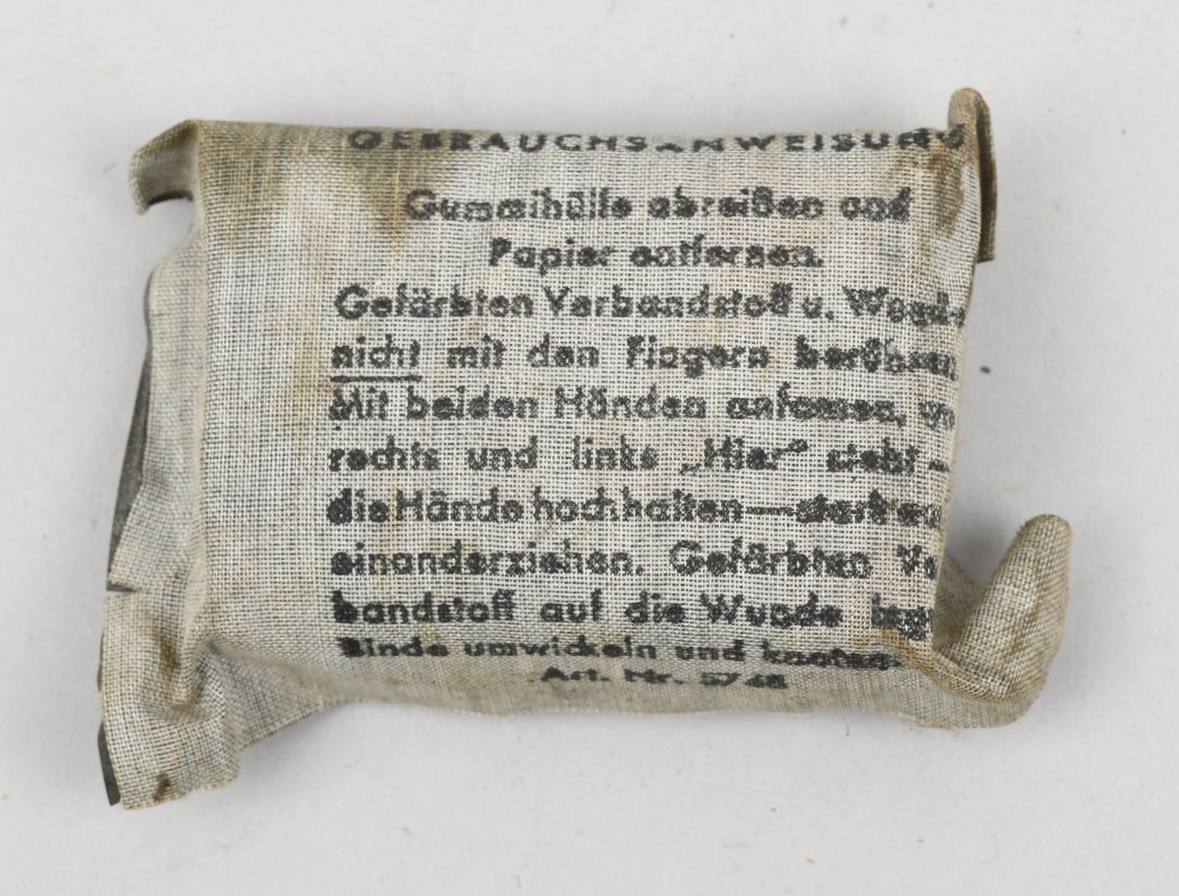 GEBRAUCHSANWEISUNG
Gummihülle abreißen und
Papier entfernen.
Gefärbten Verbandstoff u. Wund-
nicht mit den Fingern berühren.
Mit beiden Händen anfassen, wo
rechts und links „Hier“ steht —
die Hände hochhalten — stark aus
einanderziehen. Gefärbten Ve
bandstoff auf die Wunde
Binde umwickeln und knoten.
Art. Nr.